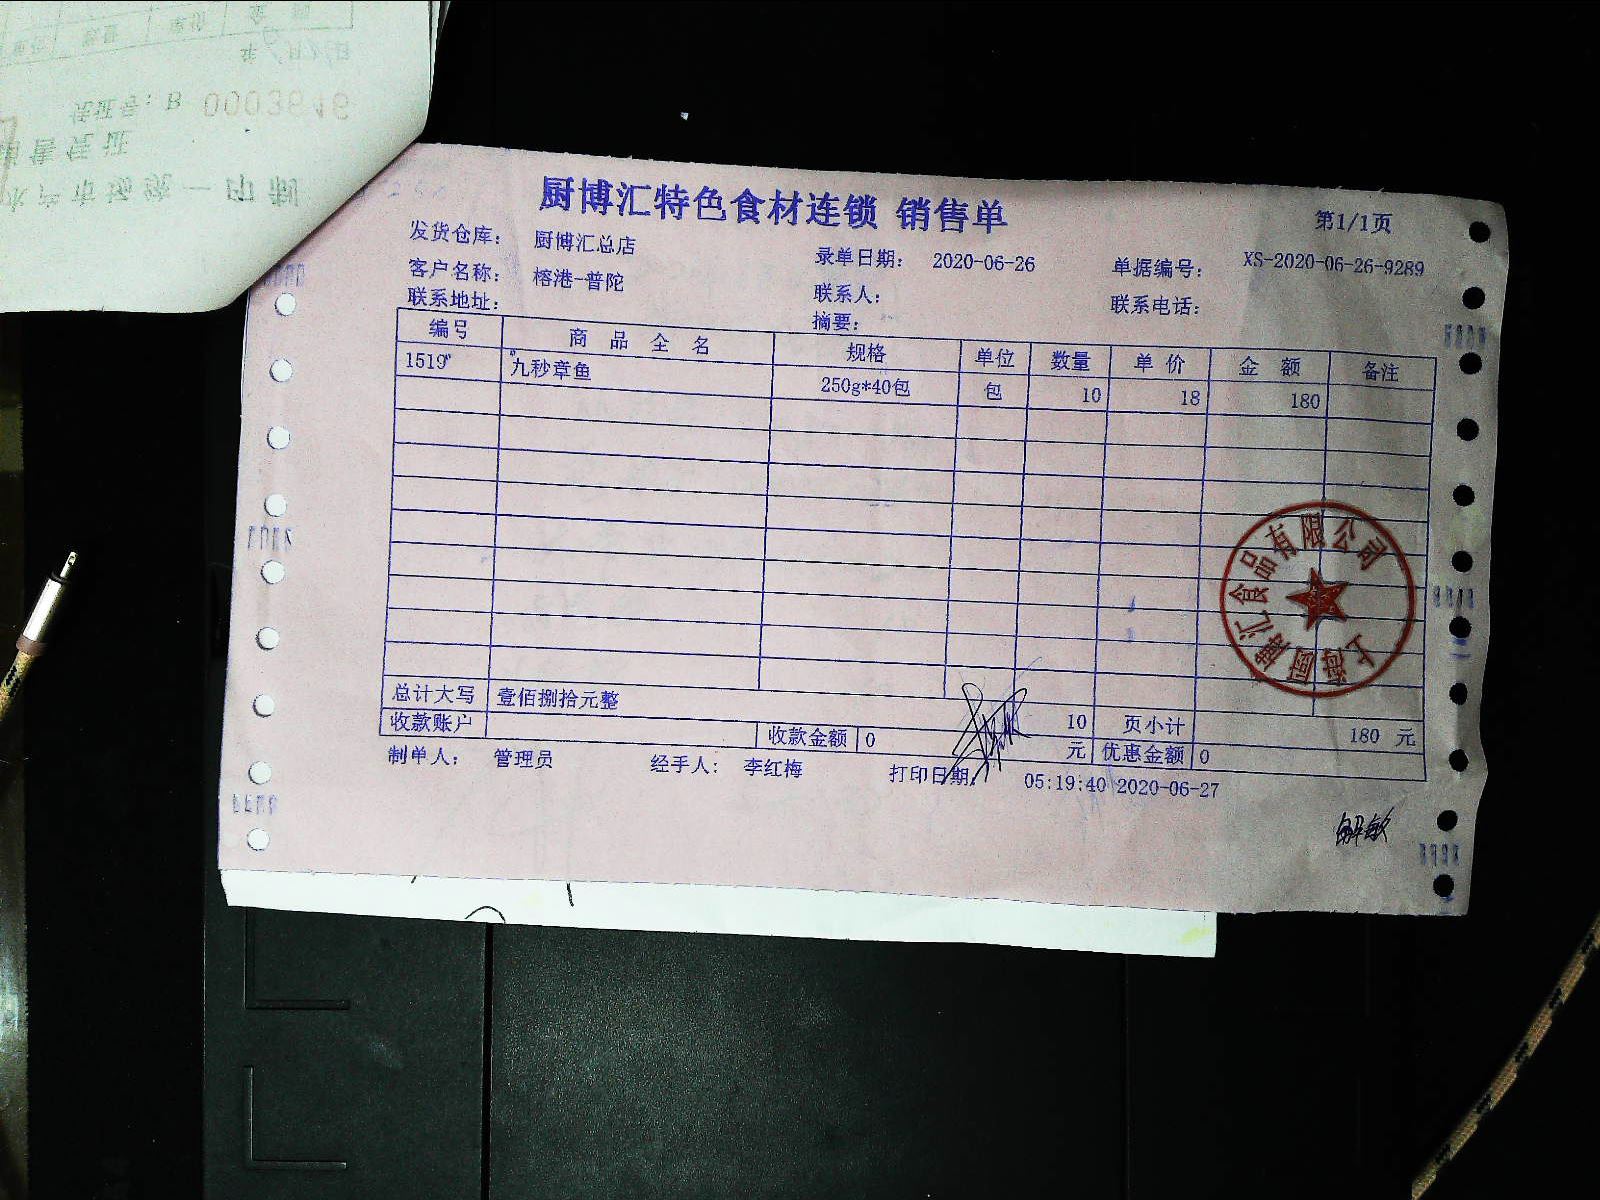 厨博汇特色食材连锁 销售单
第1/1页
发货仓库： 厨博汇总店 录单日期： 2020-06-26 单据编号： XS-2020-06-26-9289
客户名称： 榕港-普陀 联系人： 联系电话：
联系地址： 摘要：
编号 商 品 全 名 规格 单位 数量 单 价 金 额 备注
1519 九秒章鱼 250g*40包 包 10 18 180
总计大写 壹佰捌拾元整 10 页小计 180 元
收款账户 收款金额 0 元 优惠金额 0
制单人： 管理员 经手人： 李红梅 打印日期： 05:19:40 2020-06-27
上海厨博汇食品有限公司
解敏
凭证号：B 0003646